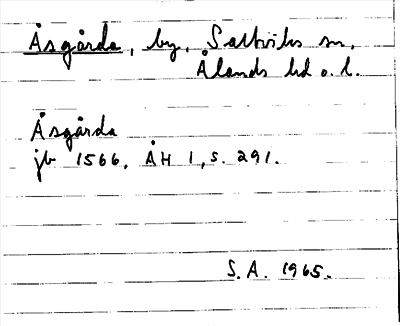 Åsgårda, by, Saltviks sn,
Ålands hd o. l.
Åsgårda
jb 1566, ÅH 1, s. 291.
S.A. 1965.